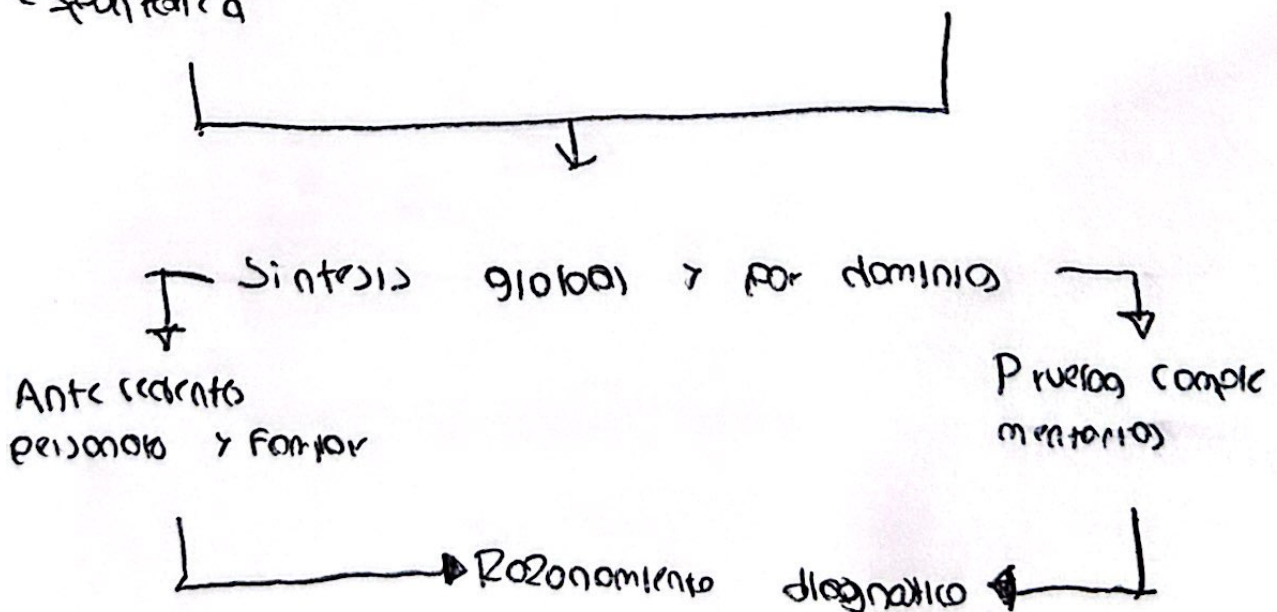 Sintesis global y por dominios
Antecedentes
personales y familiar
Pruebas comple
mentarias
Razonamiento diagnostico